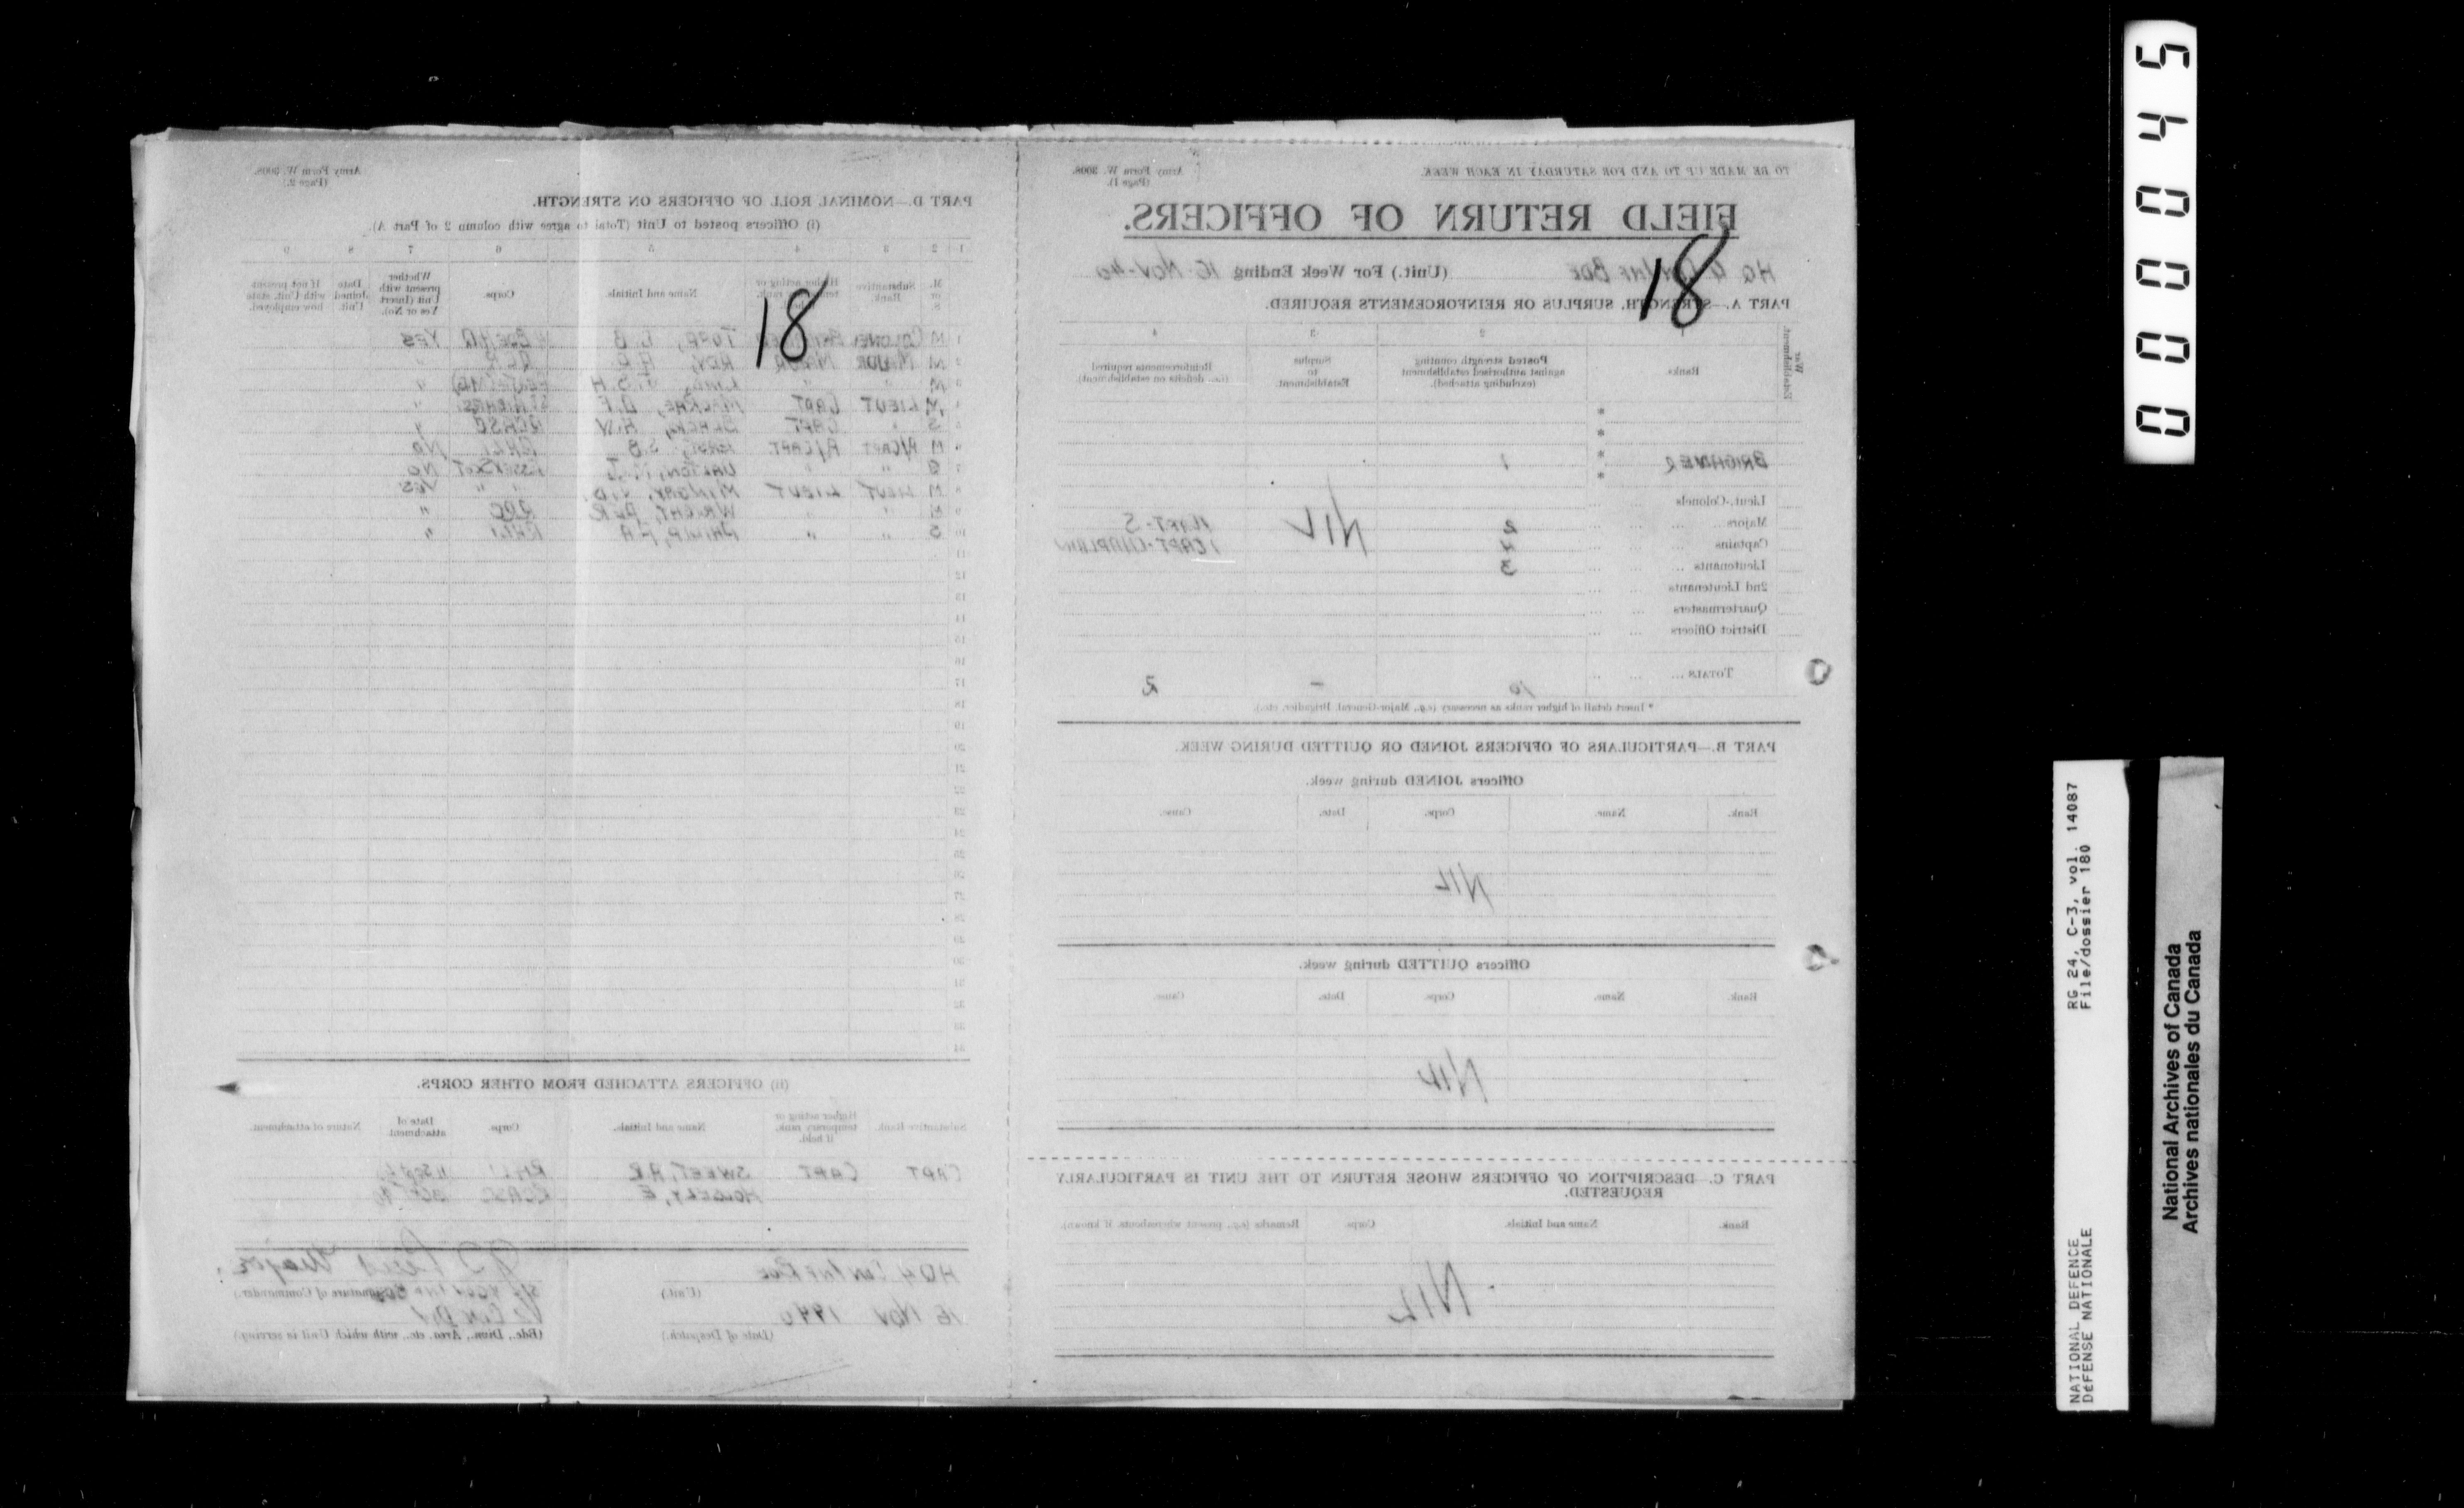 TO BE MADE UP TO AND FOR SATURDAY IN EACH WEEK.
Army Form W. 3008.
(Page 1).
FIELD RETURN OF OFFICERS.
18
HQ 4 Cdn Inf Bde (Unit.) For Week Ending 16 Nov-40
PART A.—STRENGTH, SURPLUS OR REINFORCEMENTS REQUIRED.
War Establishment
1 2 3 4
Ranks
Posted strength counting against authorised establishment (excluding attached).
Surplus to Establishment.
Reinforcements required (i.e. deficits on establishment).
*
*
BRIGADIER * 1
*
Lieut.-Colonels
Majors 2
Captains 4 NIL
1 CAPT-CHAPLAIN
Lieutenants 3
2nd Lieutenants
Quartermasters
District Officers
TOTALS 10 – 2
* Insert detail of higher ranks as necessary (e.g., Major-General, Brigadier, etc.).
PART B.—PARTICULARS OF OFFICERS JOINED OR QUITTED DURING WEEK.
Officers JOINED during week.
Rank. Name. Corps. Date. Cause.
NIL
Officers QUITTED during week.
Rank. Name. Corps. Date. Cause.
NIL
PART C.—DESCRIPTION OF OFFICERS WHOSE RETURN TO THE UNIT IS PARTICULARLY
REQUESTED.
Rank. Name and Initials. Corps. Remarks (e.g., present whereabouts, if known).
NIL
Army Form W. 3008.
(Page 2.)
PART D.—NOMINAL ROLL OF OFFICERS ON STRENGTH.
(i) Officers posted to Unit (Total to agree with column 2 of Part A.)
1 2 3 4 5 6 7 8 9
M. or S.
Substantive Rank.
Higher acting or
18
Name and Initials
Corps.
Whether present with Unit (Insert Yes or No).
Date Joined Unit.
If not present with Unit, state how employed.
1 M COLONEL TOPP, C B BDE HQ YES
2 M MAJOR MAJOR ROY, RCR "
3 M " " J.S.H "
4 M LIEUT CAPT MACRAE, D.F "
5 S " CAPT H.W RCASC "
6 M A/CAPT A/CAPT S.B RHLI No
7 " " ESSEX SCOT No
8 M LIEUT LIEUT " " YES
9 M " " WRIGHT, RCR "
10 S " " PHILIP, RHLI "
11
12
13
14
15
16
17
18
19
20
21
22
23
24
25
26
27
28
29
30
31
32
33
34
(ii) OFFICERS ATTACHED FROM OTHER CORPS.
Substantive Rank. Higher acting or temporary rank, if held. Name and Initials. Corps. Date of attachment. Nature of attachment.
CAPT CAPT SWEET, A.R RHLI
RCASC
HQ 4 Cdn Inf Bde Major
(Unit.) (Signature of Commander.)
16 NOV 1940 Cdn Div
(Date of Despatch.) (Bde., Divn., Area, etc., with which Unit is serving.)
00045
RG 24, C-3, vol. 14087
File/dossier 180
NATIONAL DEFENCE
DéFENSE NATIONALE
National Archives of Canada
Archives nationales du Canada